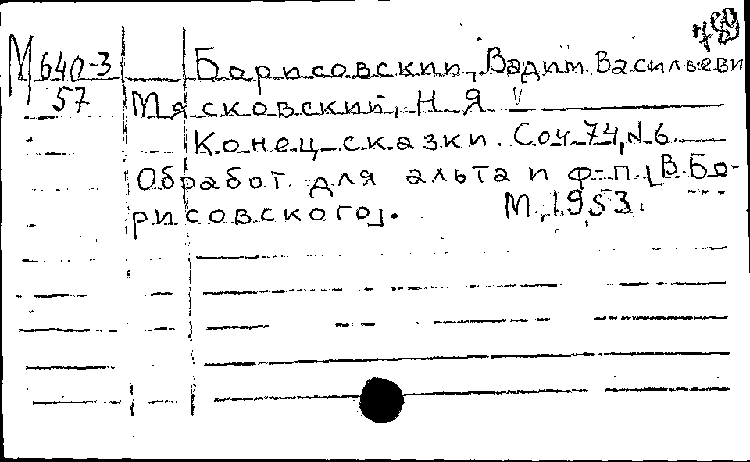 789
М 640-3 Борисовский, Вадим Васильеви
57 Мясковский, Н. Я. V
Конец сказки. Соч. 74, N 6.
Обработ. для альта и ф-п. [В. Бо-
рисовского]. М., 1953.